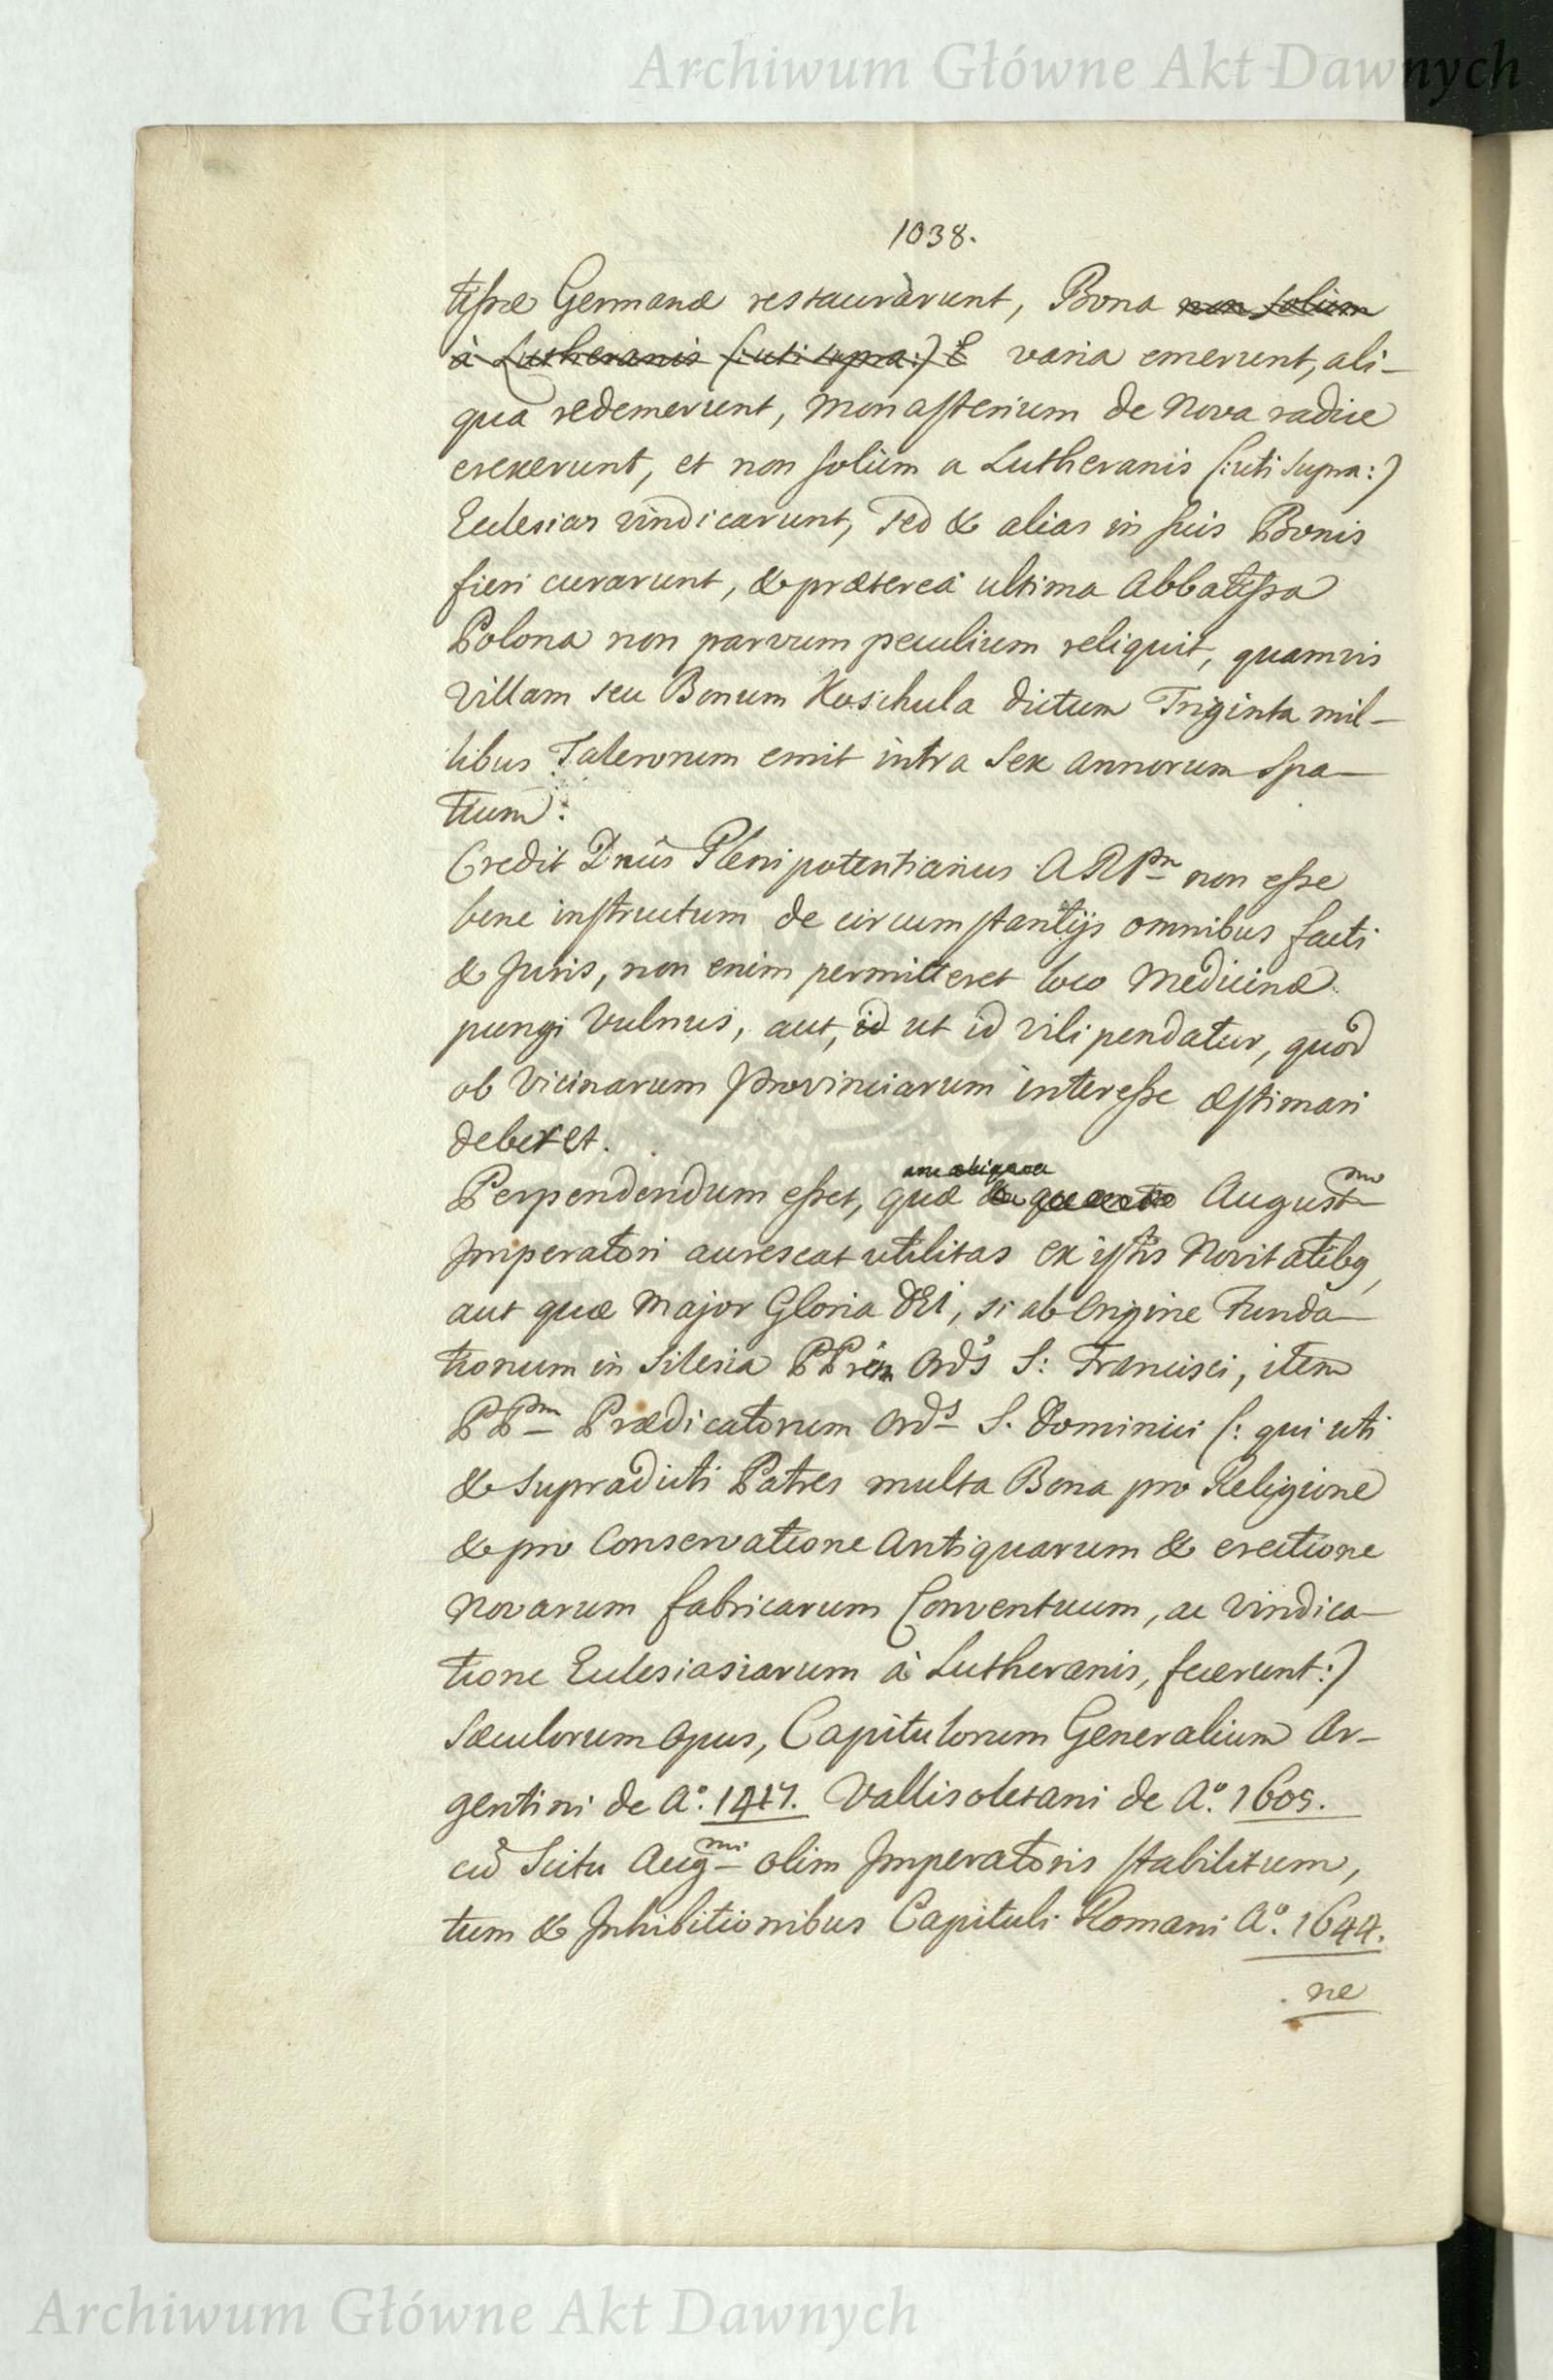 Archiwum Główne Akt Dawnych
1038.
tissæ Germanæ restaurárunt, Bona non solum
à Lutheranis (: uti supra:) E varia emerunt, ali-
qua redemerunt, Monasterium de Nova radice
erexerunt, et non solùm a Lutheranis (: uti supra:)
Ecclesias vindicarunt, sed & alias in suis Bonis
fieri curarunt, & præterea ultima Abbatissa
Polona non parvum peculium reliquit, quamvis
Villam seu Bonum Koschula dictum Triginta mil-
libus Talerorum emit intra Sex annorum Spa-
tium.
Credit Dnūs Plenipotentiarius ARPm non esse
bene instructum de circumstantijs omnibus facti
& Juris, non enim permitteret loco Medicinæ
pungi Vulnus, aut, id ut id vilipendatur, quod
ob Vicinarum Provinciarum interesse æstimari
deberet.
Perpendendum esset, quæ & Augustmo
Imperatori aurescat utilitas ex istis Novitatibq,
aut quæ Major Gloria DEI, si ab Origine Funda-
tionum in Silesia PPrūm Ords S: Francisci, item
PPm Prædicatorum Ords S. Dominici (: qui uti
& Supradicti Patres multa Bona pro Religione
& pro Conservatione Antiquarum & erectione
Novarum fabricarum Conventuum, ac Vindica-
tione Ecclesiasiarum à Lutheranis, fecerunt:)
Sæculorum Opus, Capitulorum Generalium Ar-
gentini de Ao. 1417. Vallisoletani de Ao. 1605.
cū Scitu Augmi olim Imperatoris stabilitum,
tum & Inhibitionibus Capituli Romani Ao. 1644.
ne
Archiwum Główne Akt Dawnych